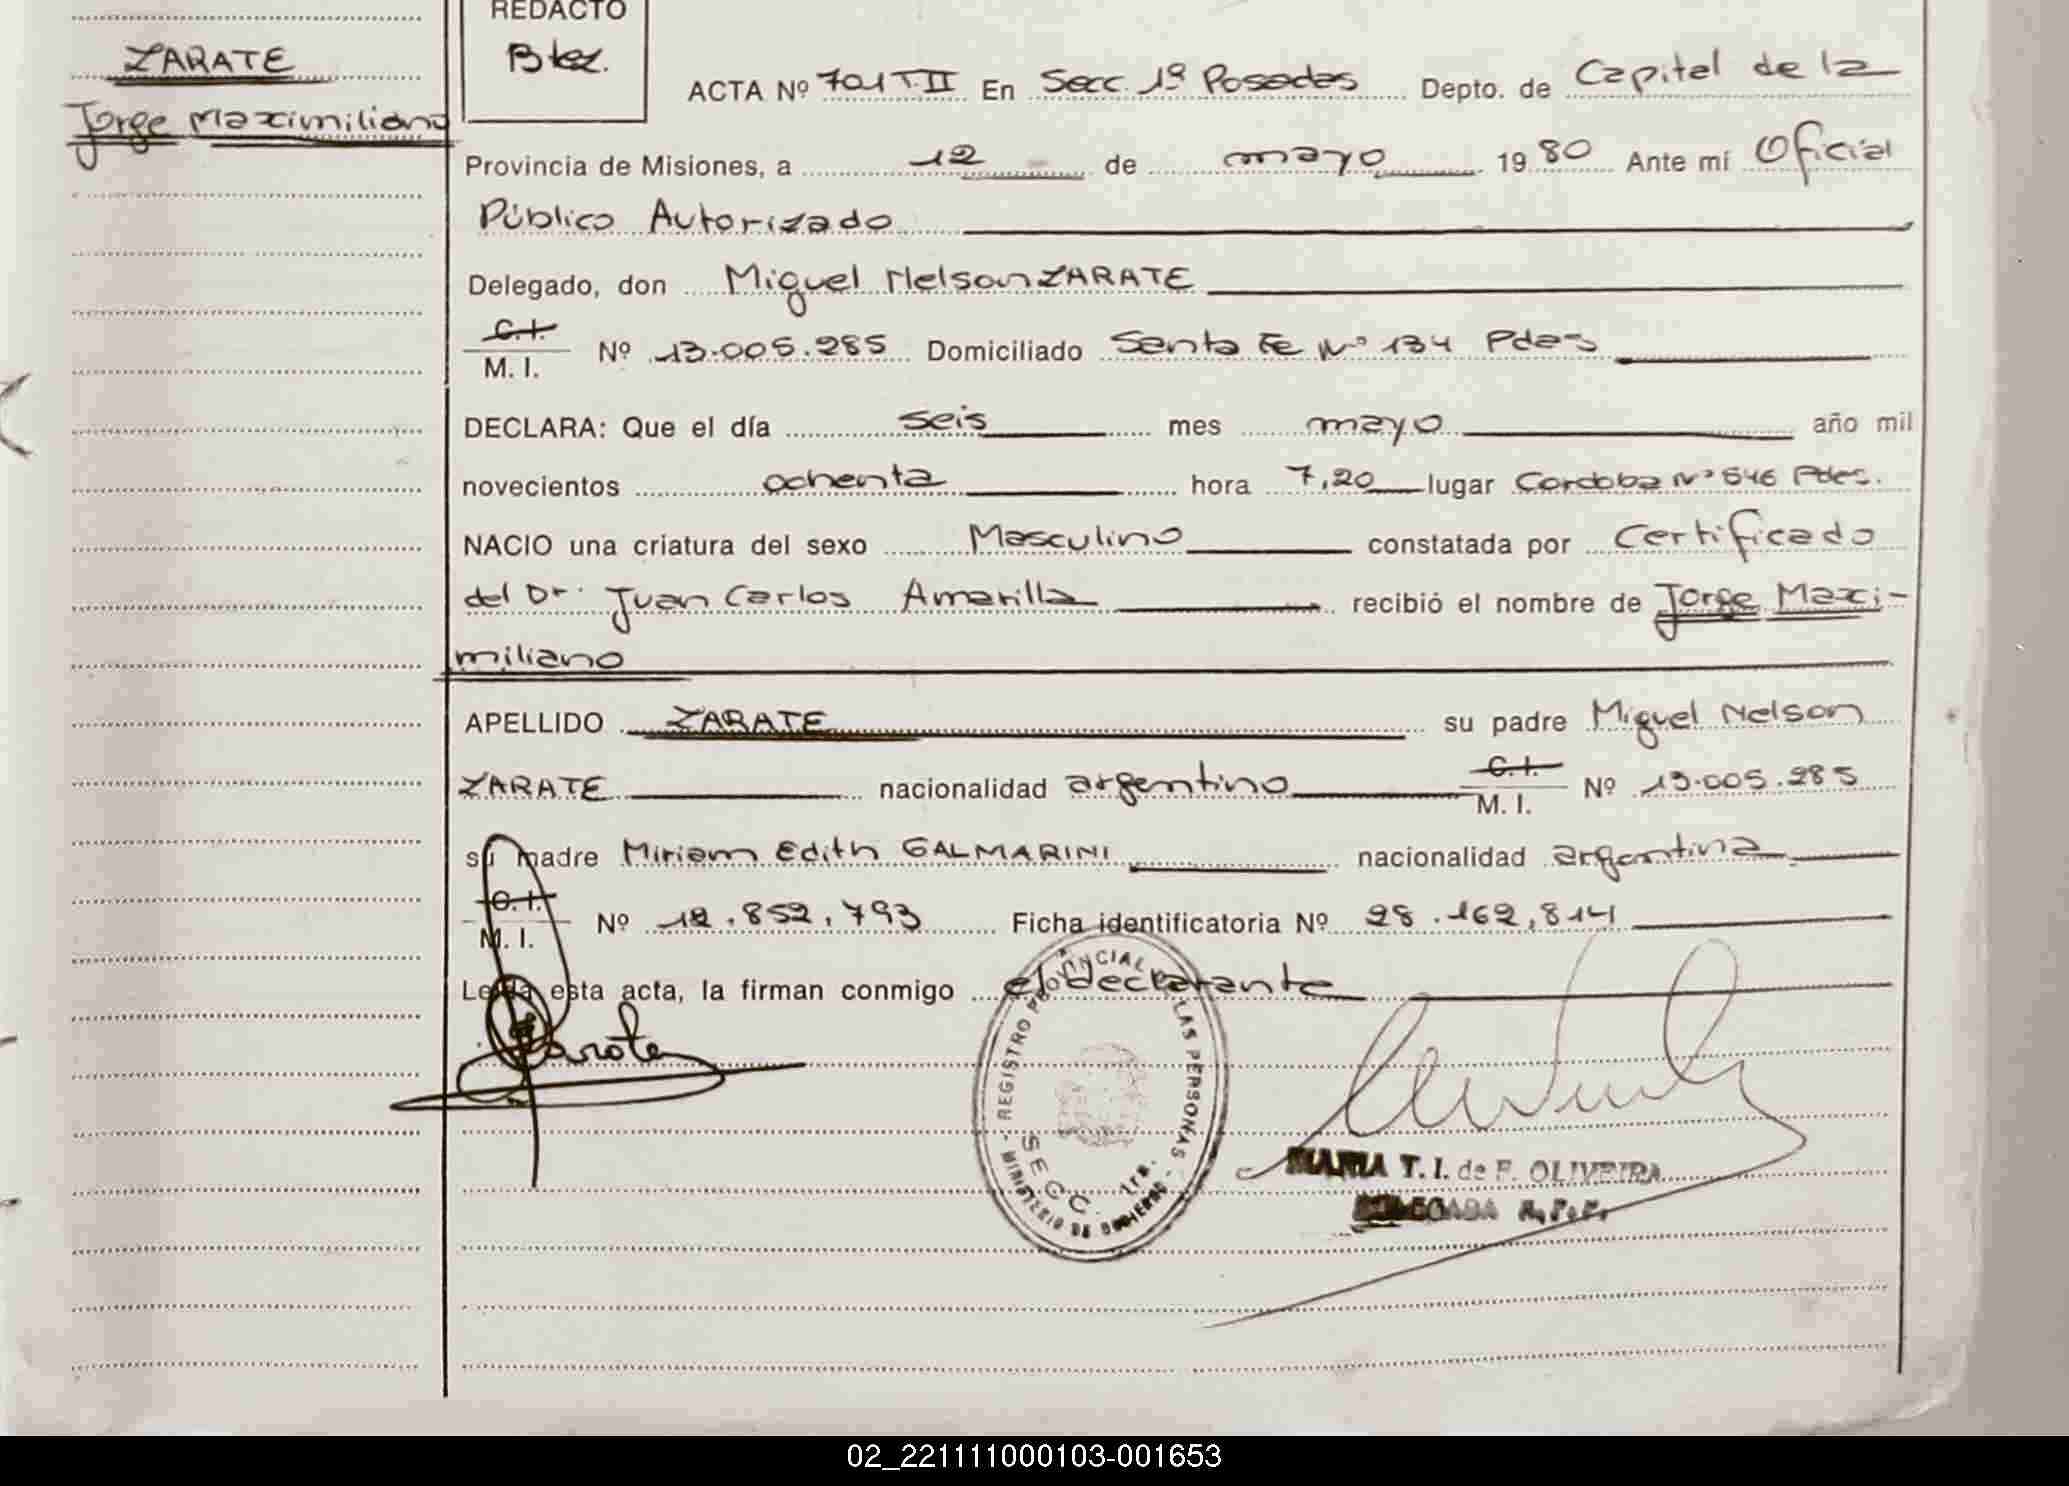 ZARATE
Jorge Maximiliano
REDACTO
Btez.
ACTA Nº 701 T.II En Secc. 1ª Posadas Depto. de Capital de la
Provincia de Misiones, a 12 de mayo 1980 Ante mí Oficial
Público Autorizado
Delegado, don Miguel Nelson ZARATE
C.I.
M. I. Nº 13.005.285 Domiciliado Santa Fe Nº 134 Pdas
DECLARA: Que el día seis mes mayo año mil
novecientos ochenta hora 7,20 lugar Cordoba Nº 546 Pdas.
NACIO una criatura del sexo Masculino constatada por Certificado
del Dr. Juan Carlos Amarilla recibió el nombre de Jorge Maxi-
miliano
APELLIDO ZARATE su padre Miguel Nelson
ZARATE nacionalidad argentino C.I. M. I. Nº 13.005.285
su madre Miriam Edith GALMARINI nacionalidad argentina
C.I.
M. I. Nº 12.852.793 Ficha identificatoria Nº 28.162,814
Leída esta acta, la firman conmigo el declarante
Zarate
REGISTRO PROVINCIAL DE LAS PERSONAS
MINISTERIO DE GOBIERNO
SECC. 1ra.
MARIA T. I. de F. OLIVEIRA
DELEGADA R.P.P.
02_221111000103-001653